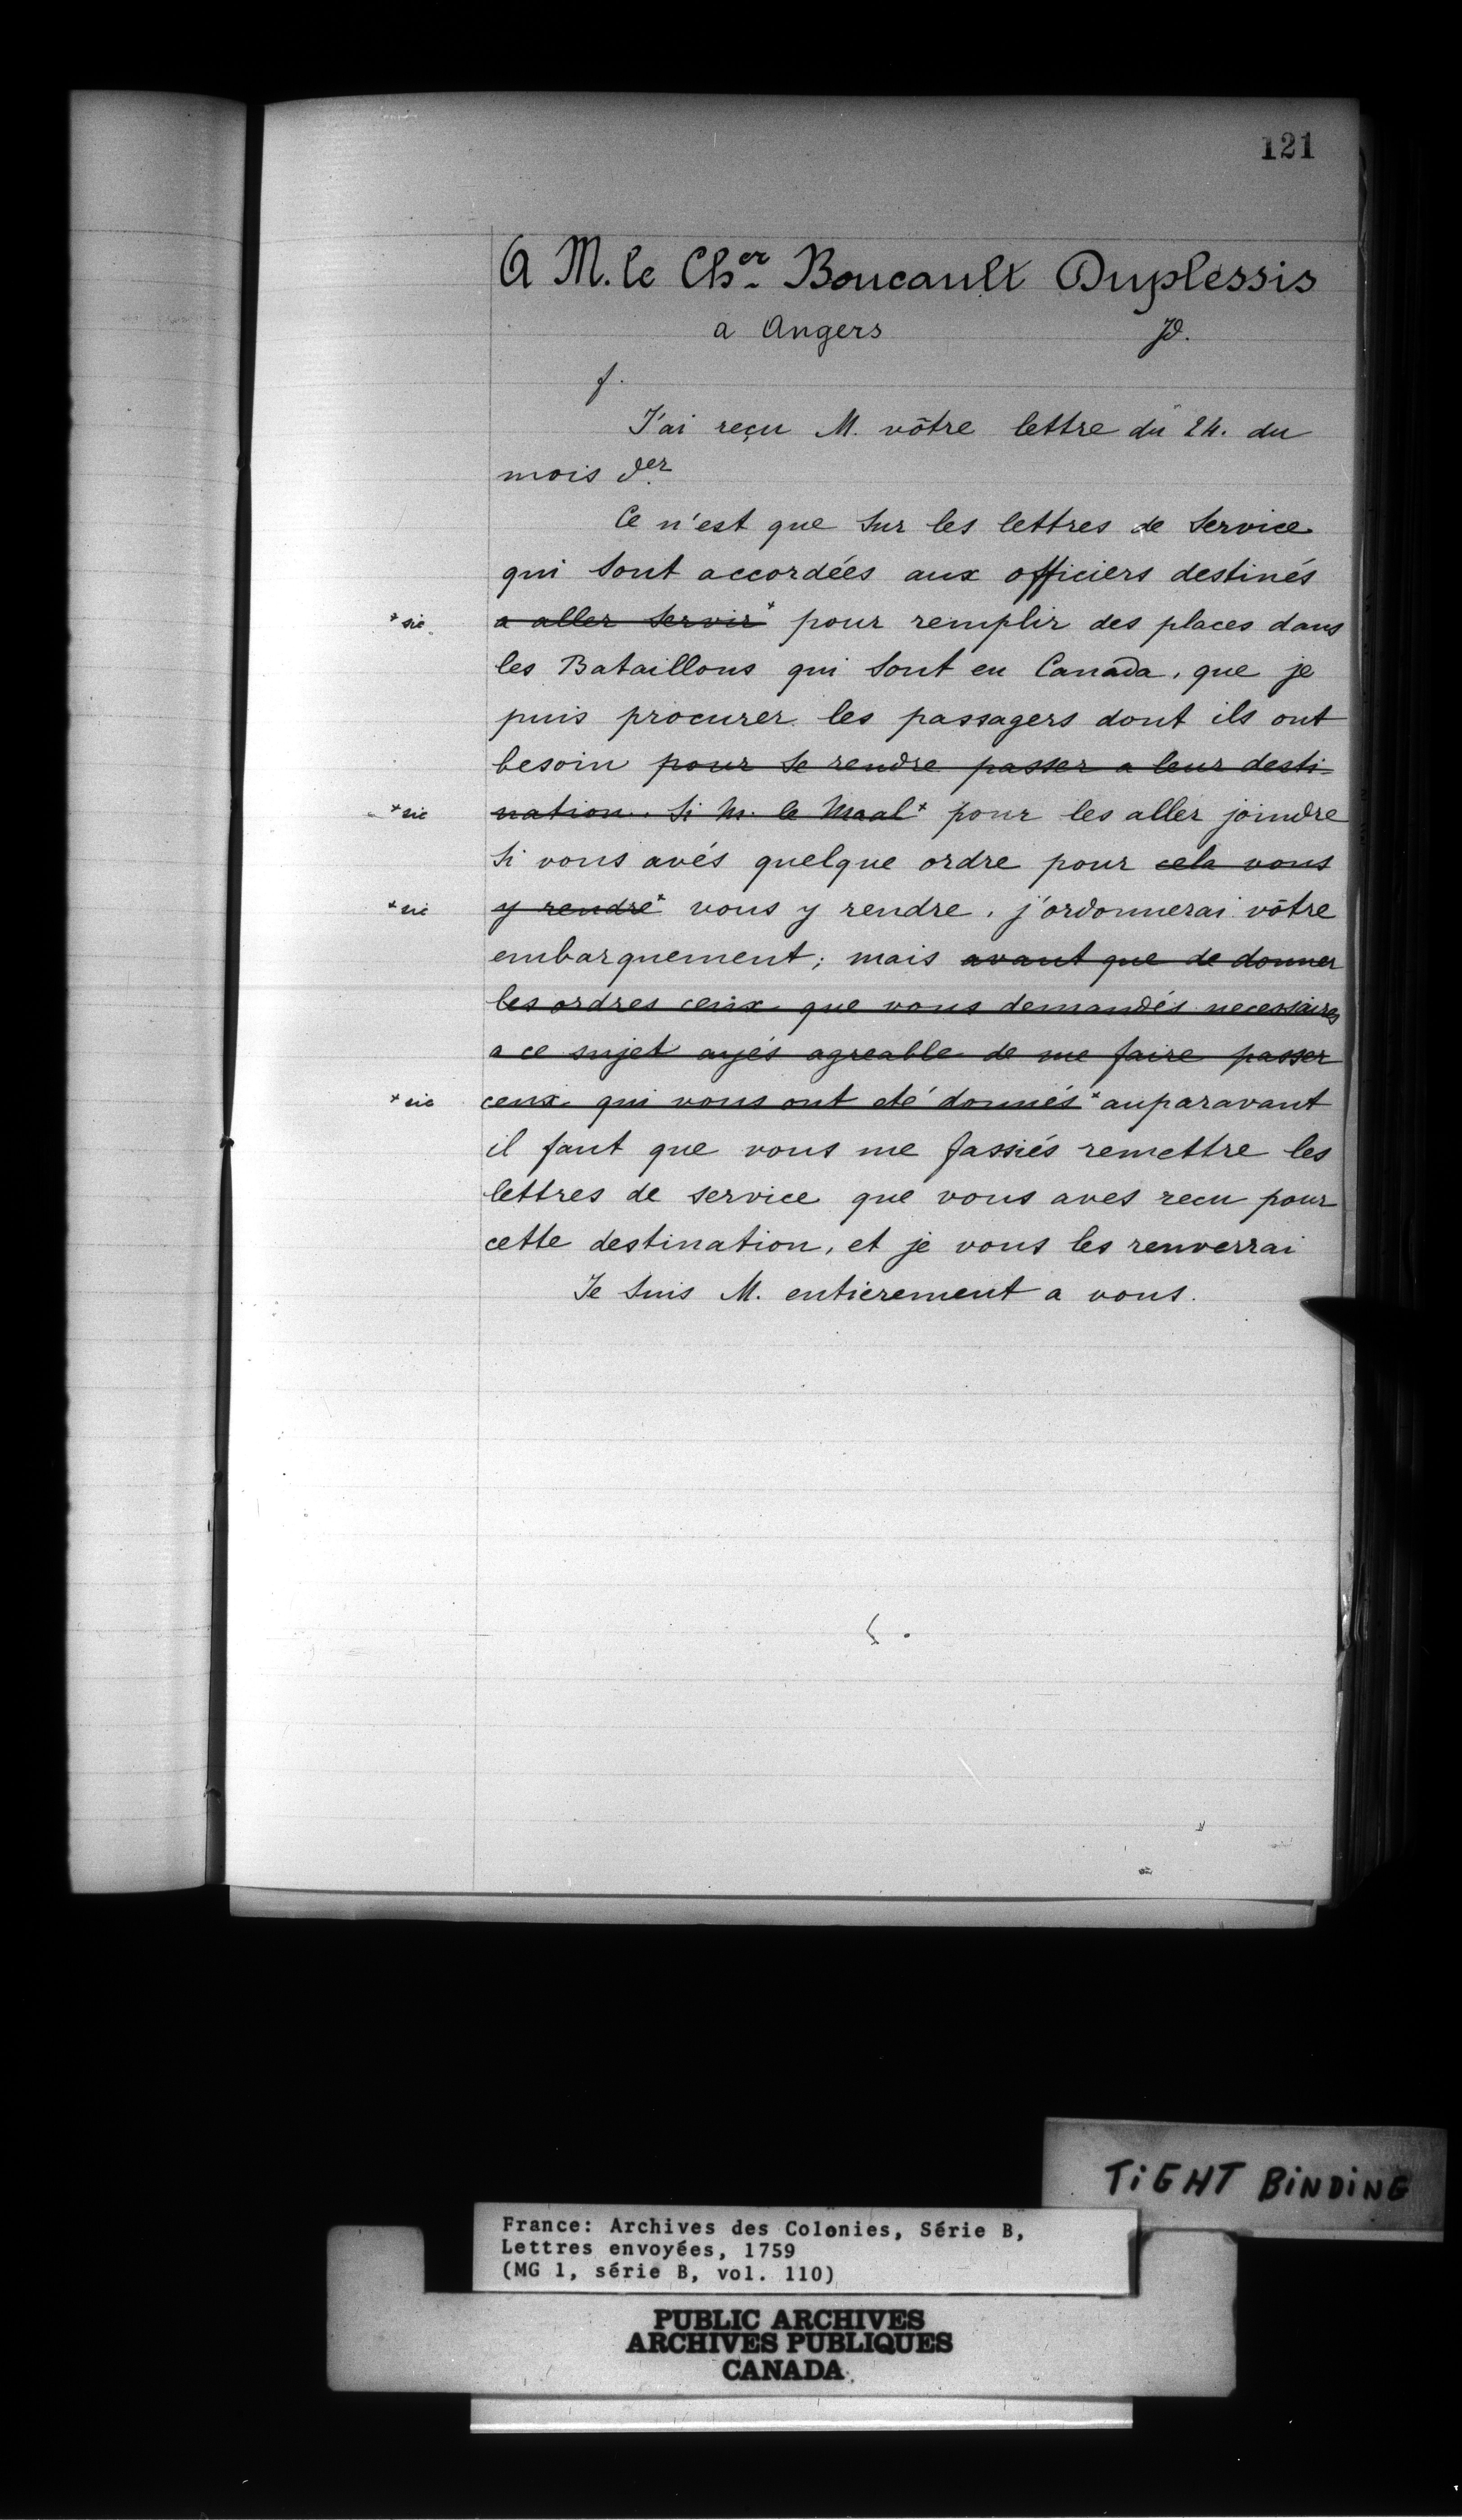 121
A M. le Cher Boucault Duplessis
a Angers Jd.
f.
J'ai reçu M. vôtre lettre du 24. du
mois der
Ce n'est que sur les lettres de service
qui sont accordées aux officiers destinés
+sic a aller servir+ pour remplir des places dans
les Bataillons qui sont en Canada, que je
puis procurer les passagers dont ils ont
besoin pour se rendre passer a leur desti-
+sic nation. Si M. le Maal+ pour les aller joindre
Si vous avés quelque ordre pour cela vous
+sic y rendre+ vous y rendre, j'ordonnerai vôtre
embarquement; mais avant que de donner
les ordres ceux que vous demandés necessaires
a ce sujet ayés agreable de me faire passer
+sic ceux qui vous ont eté donnés+ auparavant
il faut que vous me fassiés remettre les
lettres de service que vous aves recu pour
cette destination, et je vous les renverrai
Je suis M. entierement a vous.
TIGHT BINDING
France: Archives des Colonies, Série B,
Lettres envoyées, 1759
(MG 1, série B, vol. 110)
PUBLIC ARCHIVES
ARCHIVES PUBLIQUES
CANADA